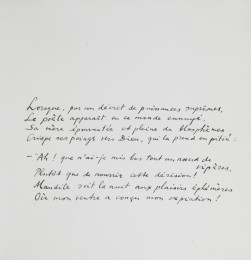 Lorsque, par un décret de puissances suprêmes,
Le poète apparaît en ce monde ennuyé,
Sa mère épouvantée et pleine de blasphèmes
Crispe ses poings vers Dieu, qui la prend en pitié :
– "Ah ! que n'ai-je mis bas tout un nœud de
vipères,
Plutôt que de nourrir cette dérision !
Maudite soit la nuit aux plaisirs éphémères
Où mon ventre a conçu mon expiation !